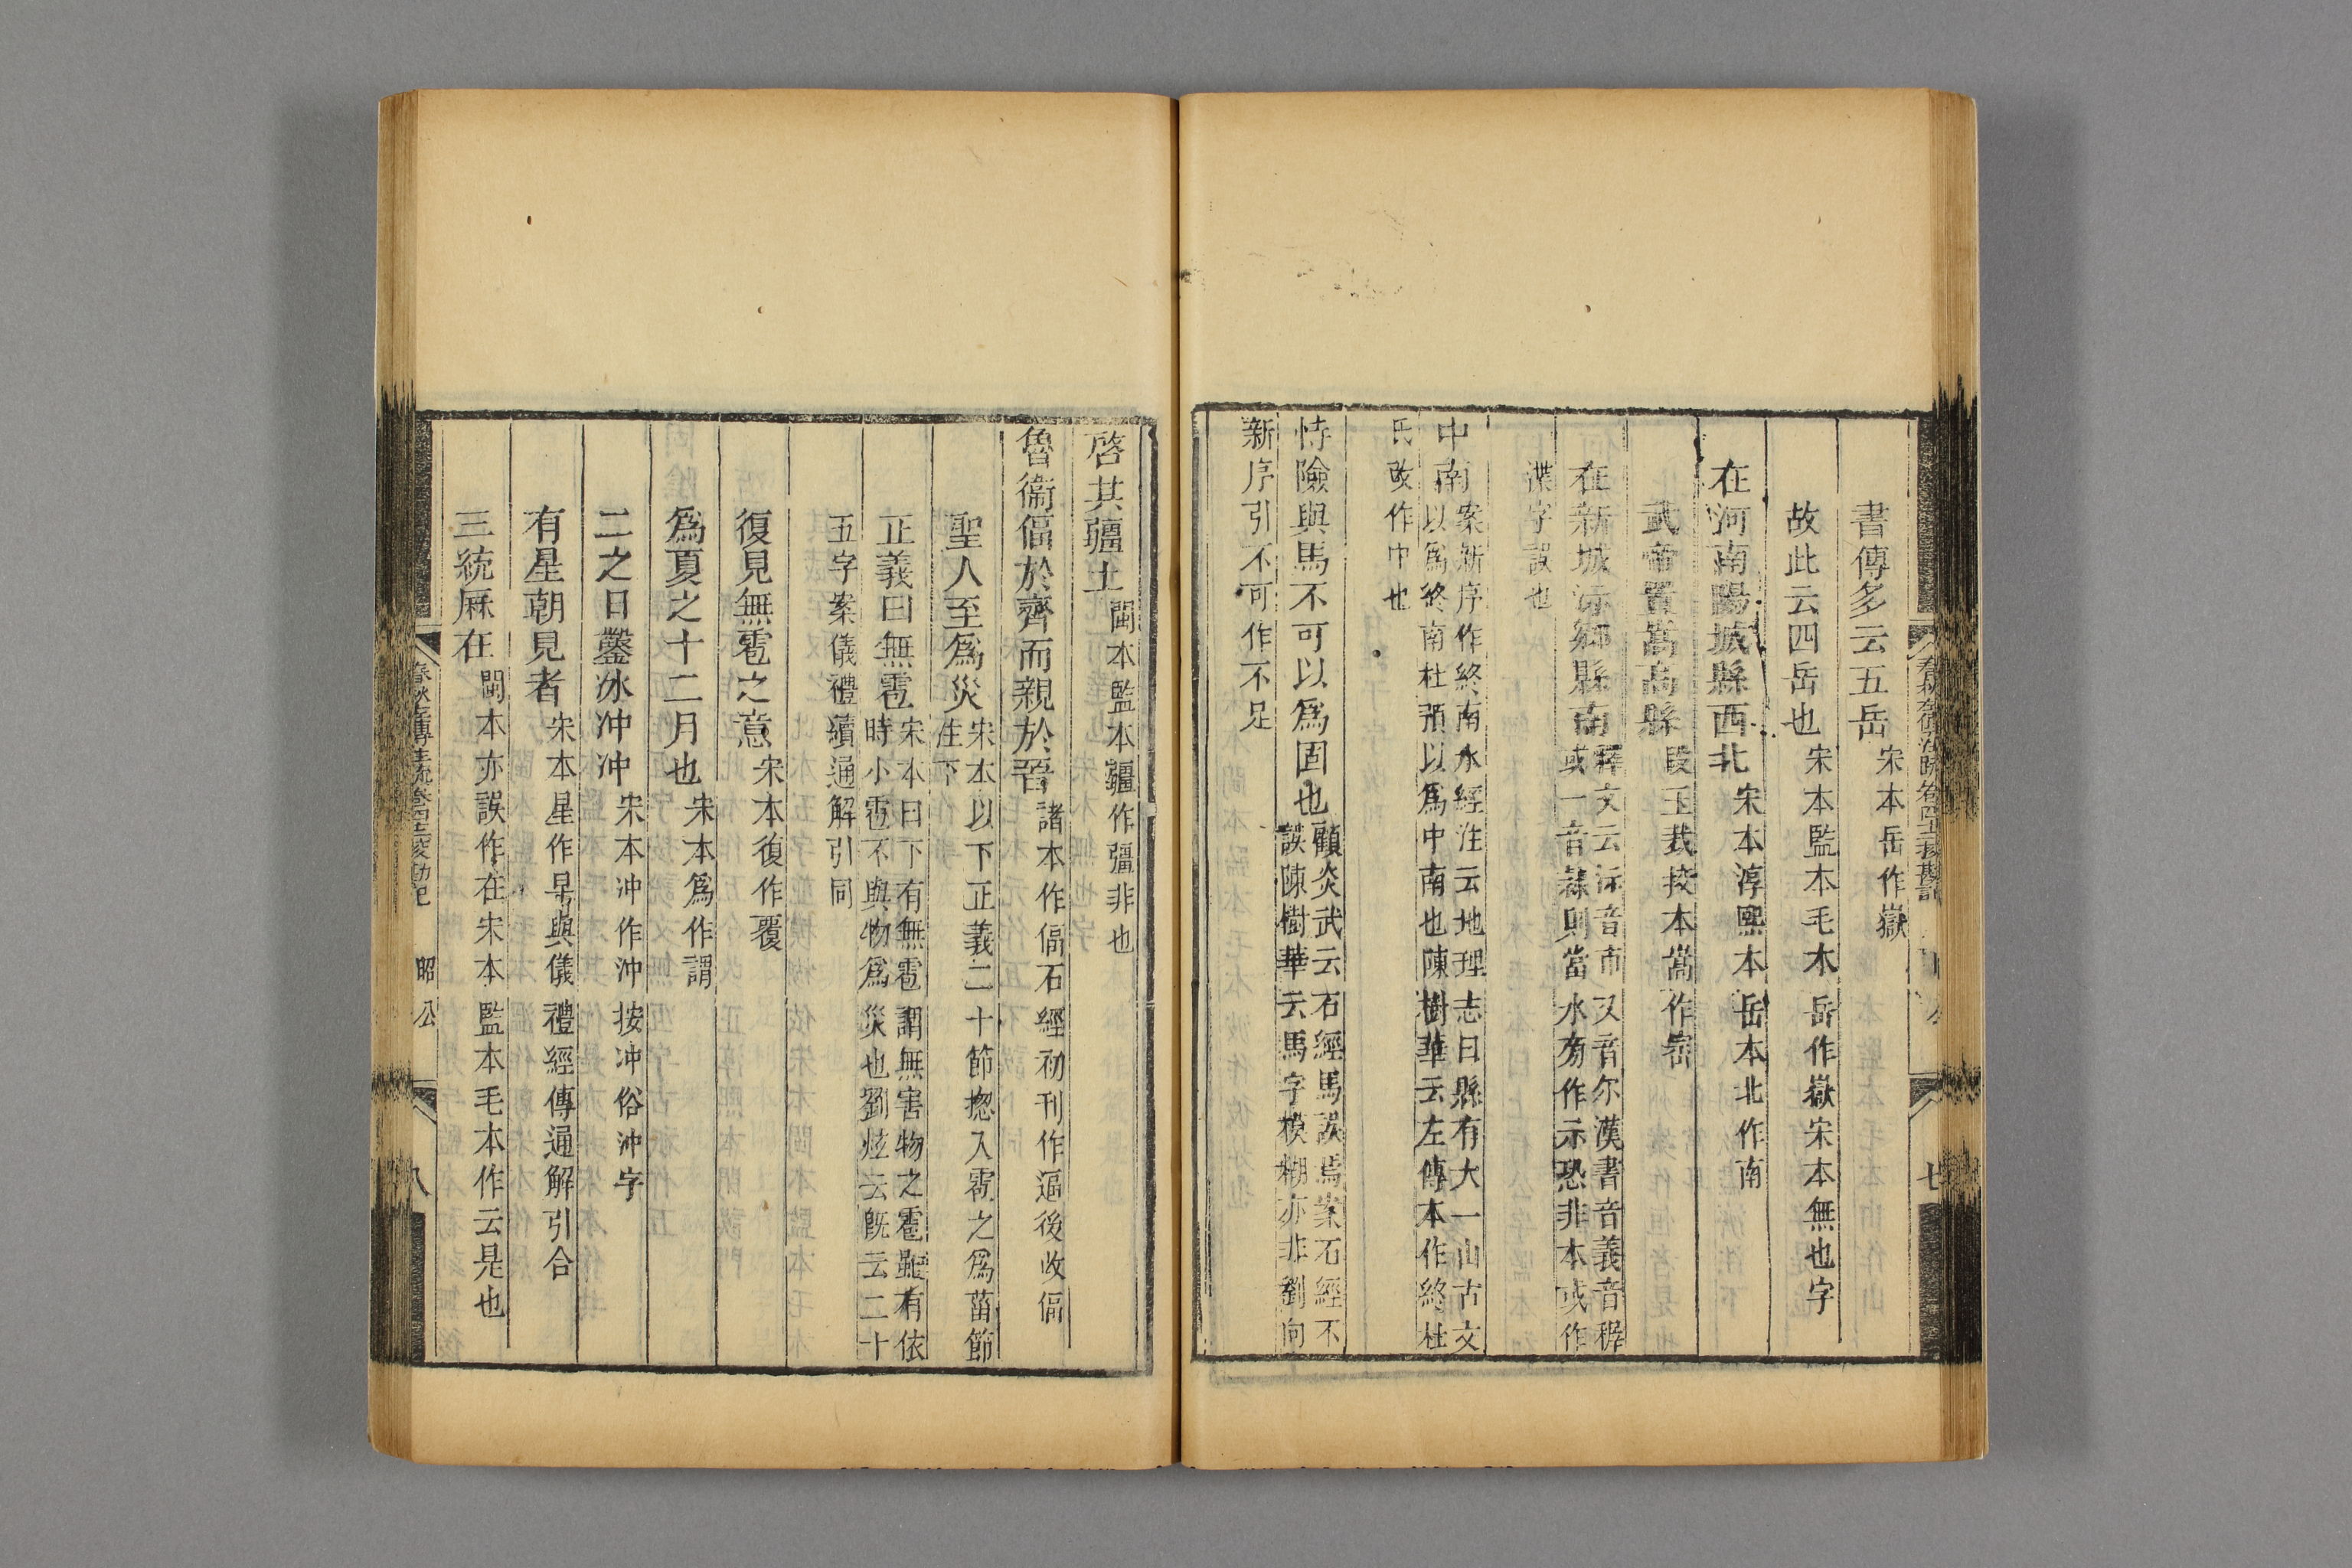 書傳多云五岳宋本岳作嶽
故此云四岳也宋本監本毛本岳作嶽宋本無也字
在河南陽城縣西北宋本淳熙本岳本北作南
武帝置嵩高縣段玉裁挍本嵩作崈
在新城沶鄉縣南釋文云沶音市又音尔漢書音義音穉
或一音隸則當水旁作示恐非本或作
漾字誤也
中南案新序作終南水經注云地理志曰縣有大一山古文
以爲終南杜預以爲中南也陳樹華云左傳本作終杜
氏改作中也
恃險與馬不可以爲固也顧炎武云石經馬誤焉案石經不
誤陳樹華云馬字模糊亦非劉向
新序引不可作不足
啓其疆土閩本監本疆作彊非也
魯衞偪於齊而親於晉諸本作偪石經初刊作逼後改偪
聖人至爲災宋本以下正義二十節揔入雹之爲菑節
注下
正義曰無雹宋本曰下有無雹謂無害物之雹雖有依
時小雹不與物爲災也劉炫云旣云二十
五字案儀禮續通解引同
復見無雹之意宋本復作覆
爲夏之十二月也宋本爲作謂
二之日鑿冰冲冲宋本冲作沖按冲俗沖字
有星朝見者宋本星作早與儀禮經傳通解引合
三統厤在閩本亦誤作在宋本監本毛本作云是也
春秋左傳注疏卷四十二挍勘記
昭公
八